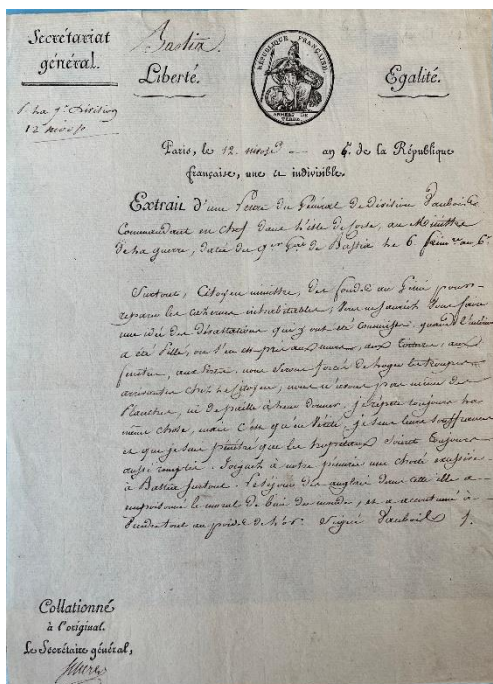 Secrétariat
général.
Bastia.
Liberté.
RÉPUBLIQUE FRANÇAISE.
ARMÉES DE
TERRE.
Egalité.
12 nivose
Paris, le 12. nivose an 6e. de la République
française, une et indivisible.
Extrait d'une lettre du Général de Division Vaubois
Commandant en chef dans l'isle de Corse, au Ministre
de la guerre, datée du qer gral de Bastia le 6 frimre an 6e.
Surtout, Citoyen ministre, des fonds au Génie pour
reparer les casernes inhabitables; vous ne sauriez vous faire
une idée des dévastations qui y ont été commises. quand l'intérieur
a été pillé, on s'en est pris aux murs, aux toitures, aux
fenêtres, aux portes. nous serons forcés de loger les troupes
arrivantes chez le Citoyen, nous n'avons pas même de
planches, ni de paille à leur donner. je répète toujours la
même chose, mais c'est qu'en vérité, je sens leurs souffrances
et que je sais que les hopitaux soient toujours
aussi remplis. Joignez à notre une cherté excessive
à Bastia surtout. le séjour des anglais dans cette ville a
empoisonné le moral de bien du monde, et a accoutumé à
vendre tout au poids de l'or. Signé Vaubois
Collationné
à l'original.
Le Secrétaire général,